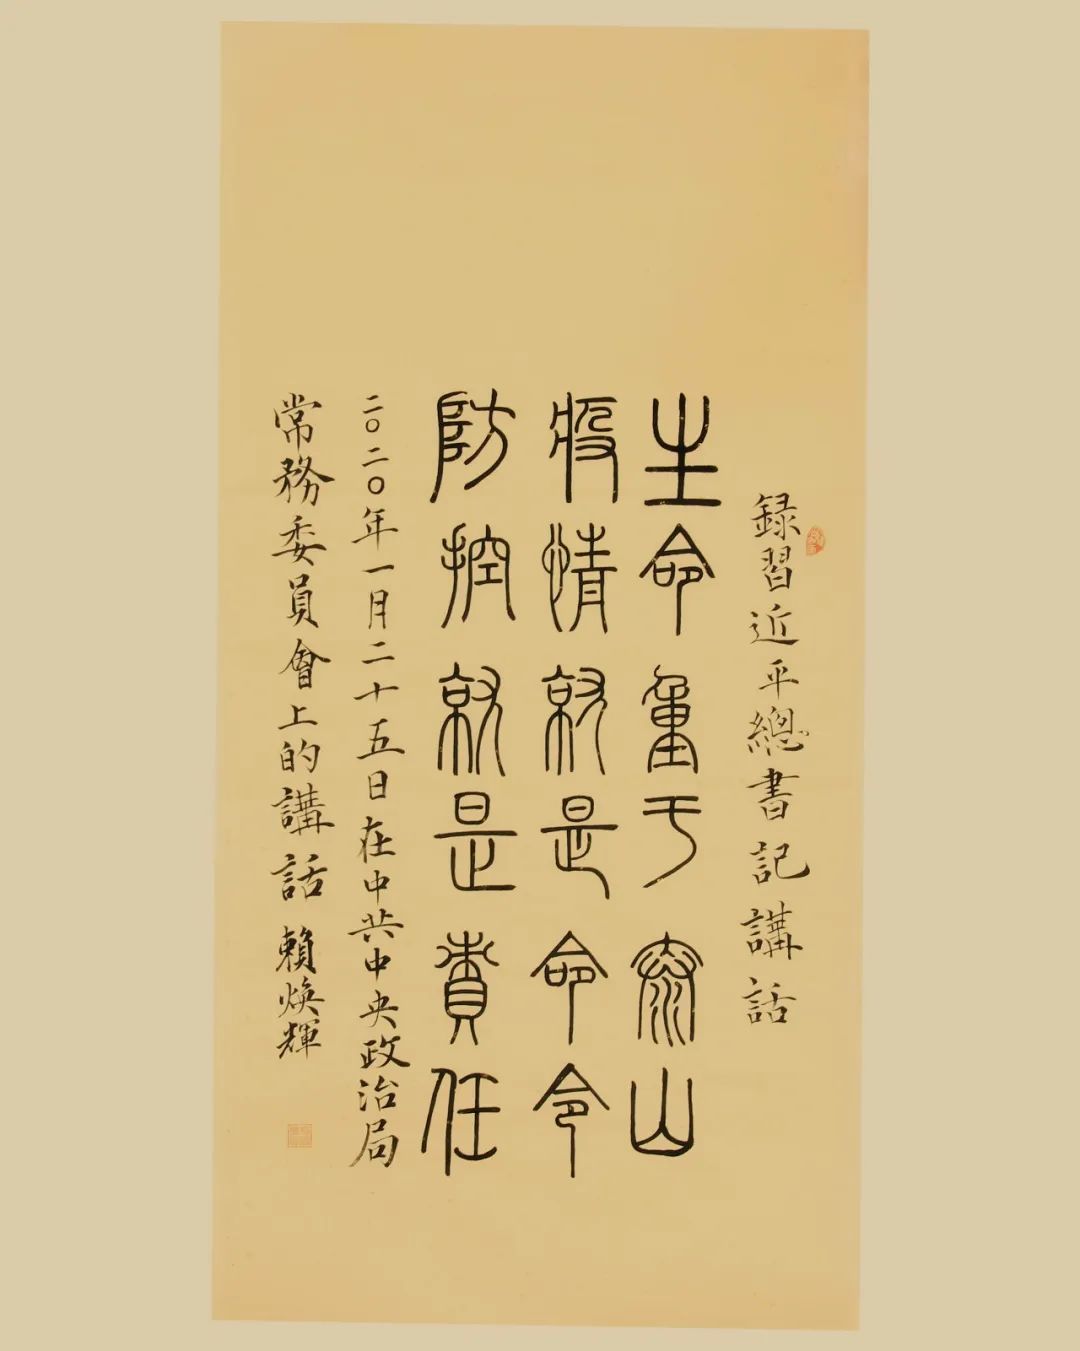 録習近平總書記講話
生命重于泰山
疫情就是命令
防控就是責任
二〇二〇年一月二十五日在中共中央政治局
常務委員會上的講話 賴煥輝